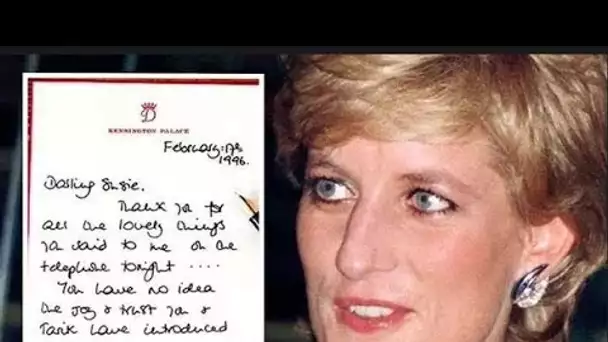 D
KENSINGTON PALACE
February: 17th
1996.
Darling Susie,
Thank you for
all the lovely things
you said to me on the
telephone tonight ....
You have no idea
the joy & trust you &
Tarik have introduced